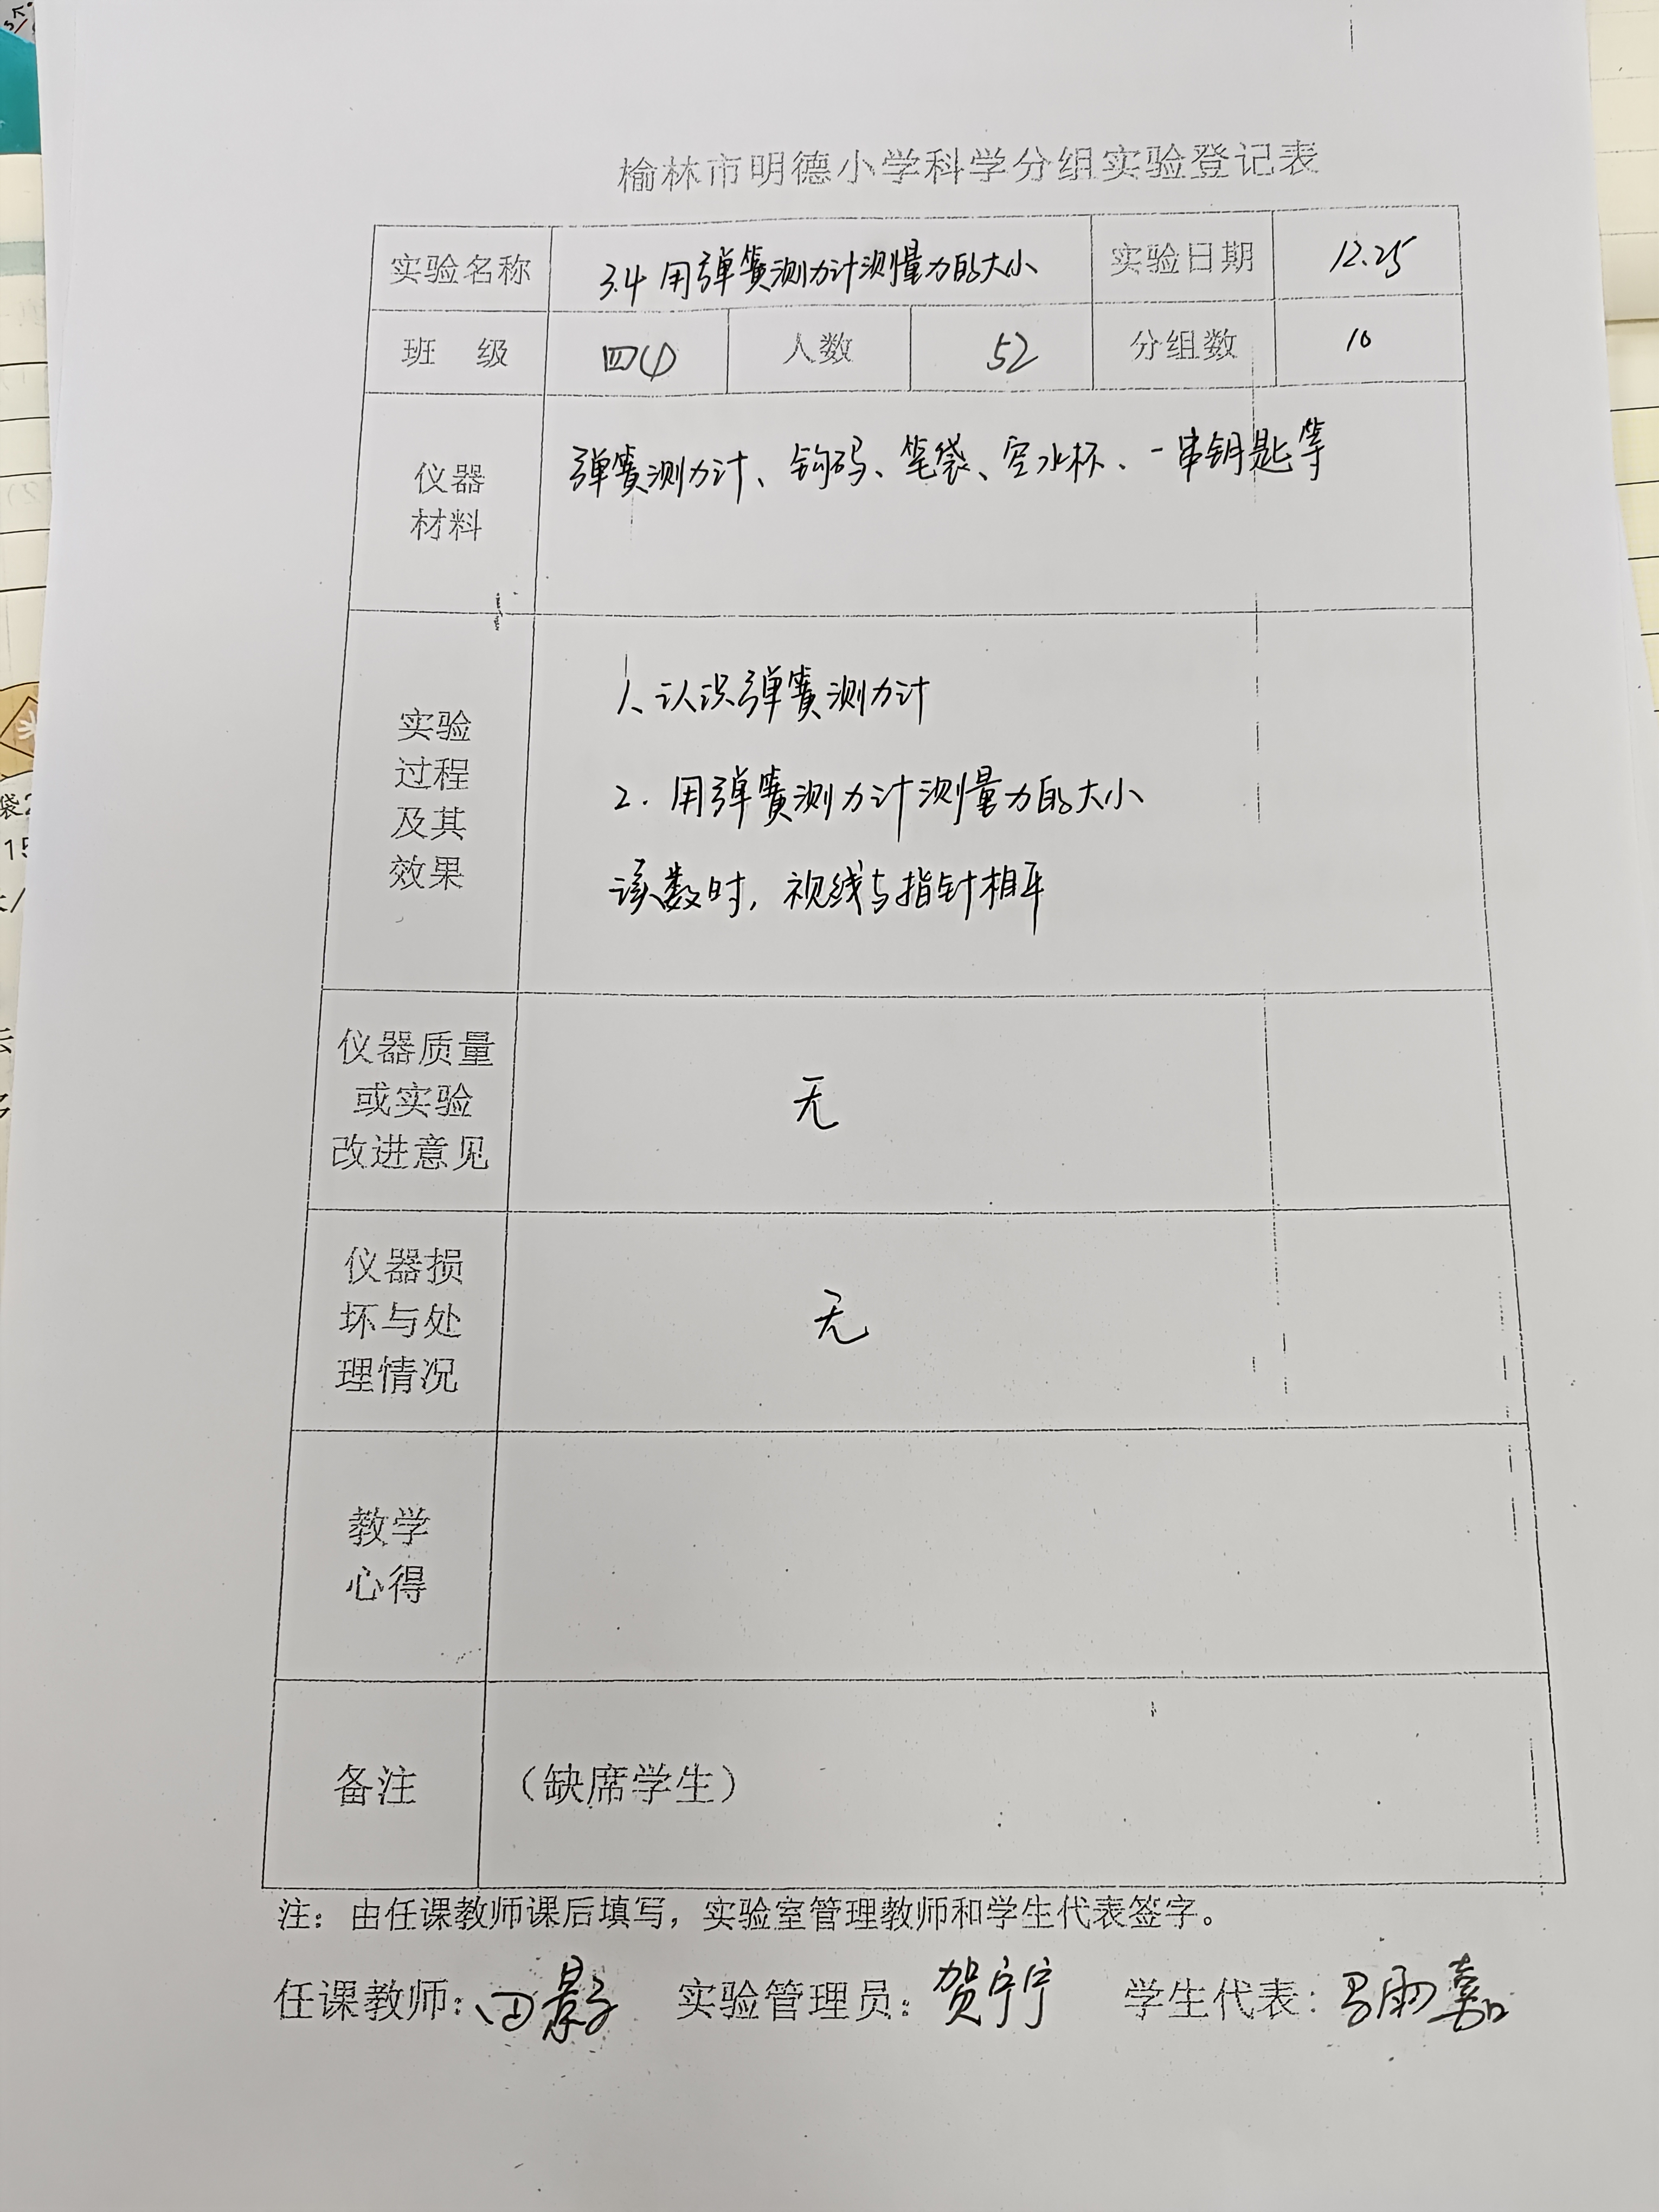 榆林市明德小学科学分组实验登记表
实验名称 3.4 用弹簧测力计测量力的大小 实验日期 12.25
班 级 四(1) 人数 52 分组数 10
仪器
材料
弹簧测力计、钩码、笔袋、空水杯、一串钥匙等
实验
过程
及其
效果
1、认识弹簧测力计
2. 用弹簧测力计测量力的大小
读数时, 视线与指针相平
仪器质量
或实验
改进意见
无
仪器损
坏与处
理情况
无
教学
心得
备注 (缺席学生)
注: 由任课教师课后填写, 实验室管理教师和学生代表签字。
任课教师: 田 实验管理员: 贺宁宁 学生代表: 雨嘉